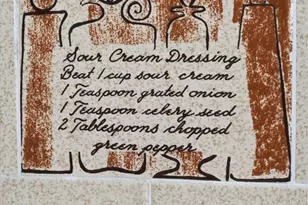 Sour Cream Dressing
Beat 1 cup sour cream
1 Teaspoon grated onion
1 Teaspoon celery seed
2 Tablespoons chopped
green pepper